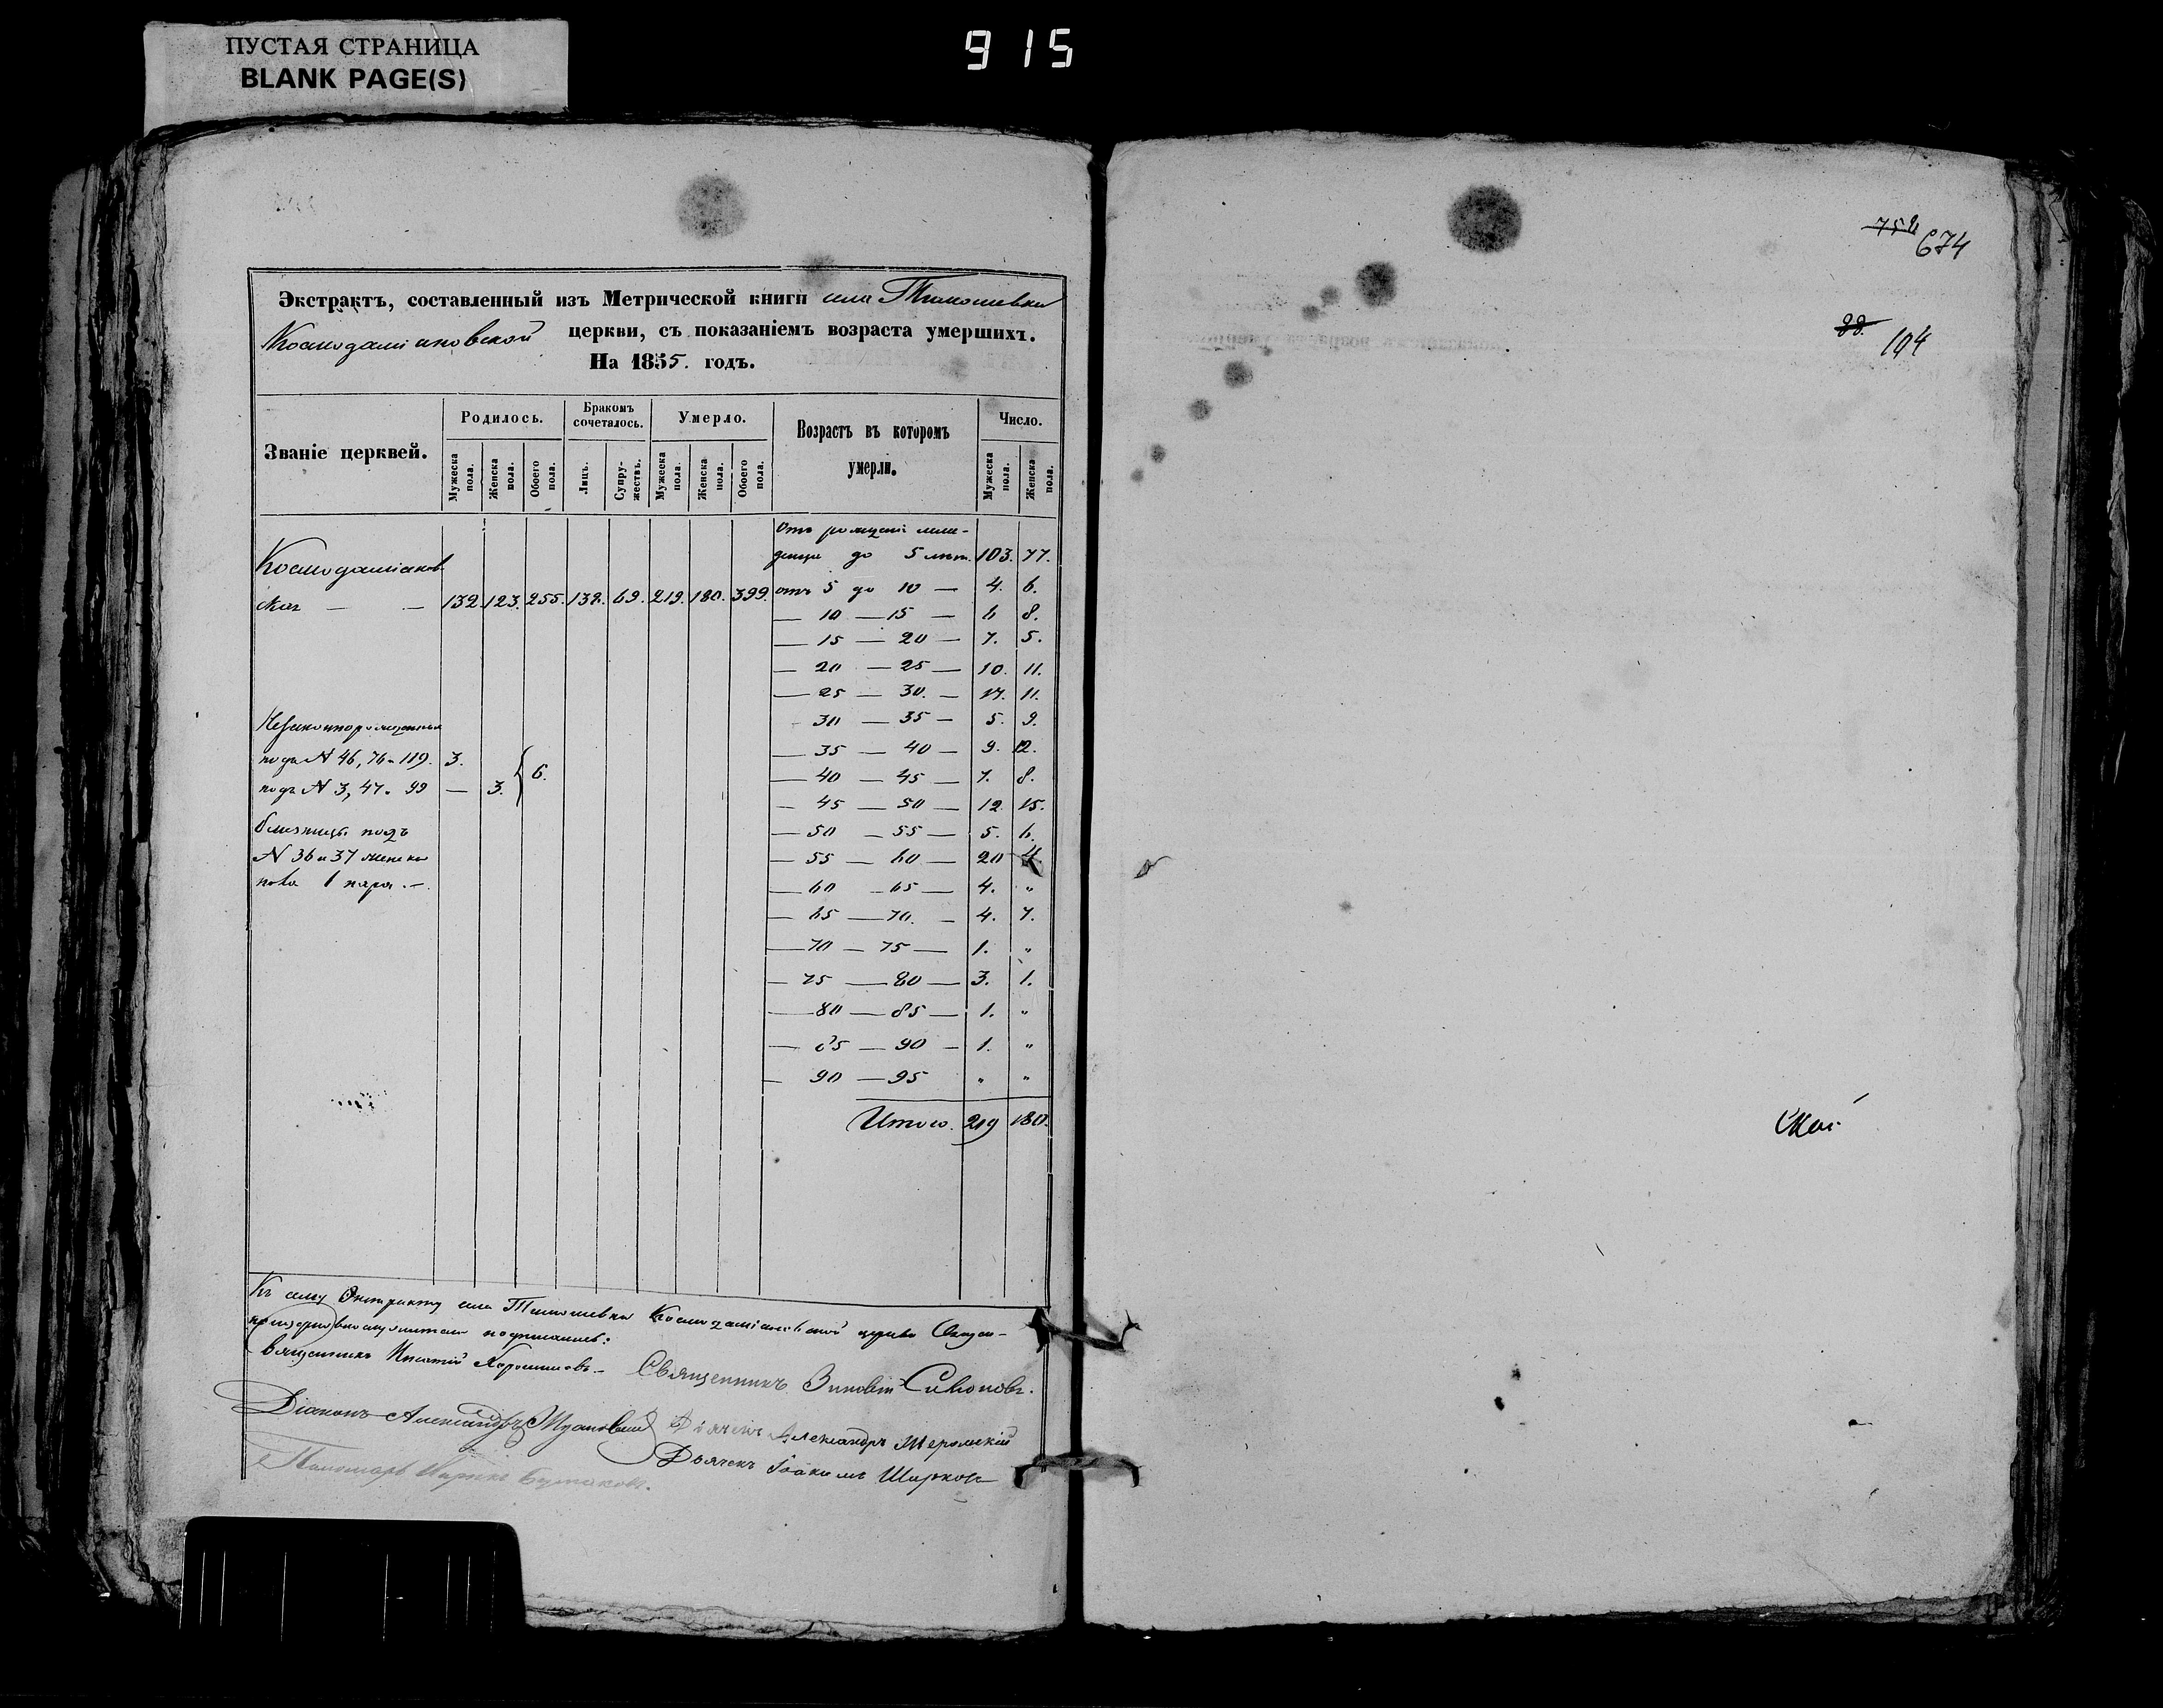 ПУСТАЯ СТРАНИЦА
BLANK PAGE(S)
915
Экстрактъ, составленный изъ Метрической книги села Тимошевки
Космодаміановской церкви, съ показаніемъ возраста умершихъ.
На 1855. годъ.
Званіе церквей.
Родилось.
Бракомъ сочеталось.
Умерло.
Возрастъ въ которомъ умерли.
Число.
Мужеска пола.
Женска пола.
Обоего пола.
Лицъ.
Супружествъ.
Мужеска пола.
Женска пола.
Обоего пола.
Мужеска пола.
Женска пола.
Космодаміанов-
ская — — 132. 123. 255. 138. 69. 219. 180. 399.
Отъ рожденія мла-
денца до 5 лѣтъ. 103. 77.
отъ 5 до 10 — 4. 6.
— 10 — 15 — 6 8.
— 15 — 20 — 7. 5.
— 20 — 25 — 10. 11.
— 25 — 30. — 17. 11.
— 30 — 35 — 5. 9.
— 35 — 40 — 9. 12.
— 40 — 45 — 7. 8.
— 45 — 50 — 12. 15.
— 50 — 55 — 5. 6.
— 55 — 60 — 20 4.
— 60 — 65 — 4. "
— 65 — 70. — 4. 7.
— 70 — 75 — 1. "
— 75 — 80 — 3. 1.
— 80 — 85 — 1. "
— 85 — 90 — 1. "
— 90 — 95 " "
Итого. 219 180.
Незаконнорожденныхъ
подъ N 46, 76 и 119. 3.
подъ N 3, 47 и 99 — 3. 6.
близнецы подъ
N 36 и 37 женска
пола 1 пара. —
Къ сему Экстракту села Тимошевки Космодаміановской церкви
подписались:
Священникъ Игнатій — Священникъ Зиновій
Діаконъ Александръ Дьячекъ Александръ
Дьячекъ Іоакимъ Шарковъ
Пономарь
674
194
ской